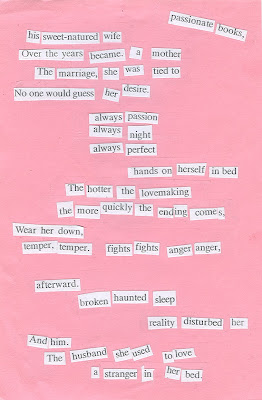 passionate books,
his sweet-natured wife
Over the years became. a mother
The marriage, she was tied to
No one would guess her desire.
always passion
always night
always perfect
hands on herself in bed
The hotter the lovemaking
the more quickly the ending comes,
Wear her down,
temper. temper. fights fights anger anger,
afterward.
broken haunted sleep
reality disturbed her
And him.
The husband she used to love
a stranger in her bed.